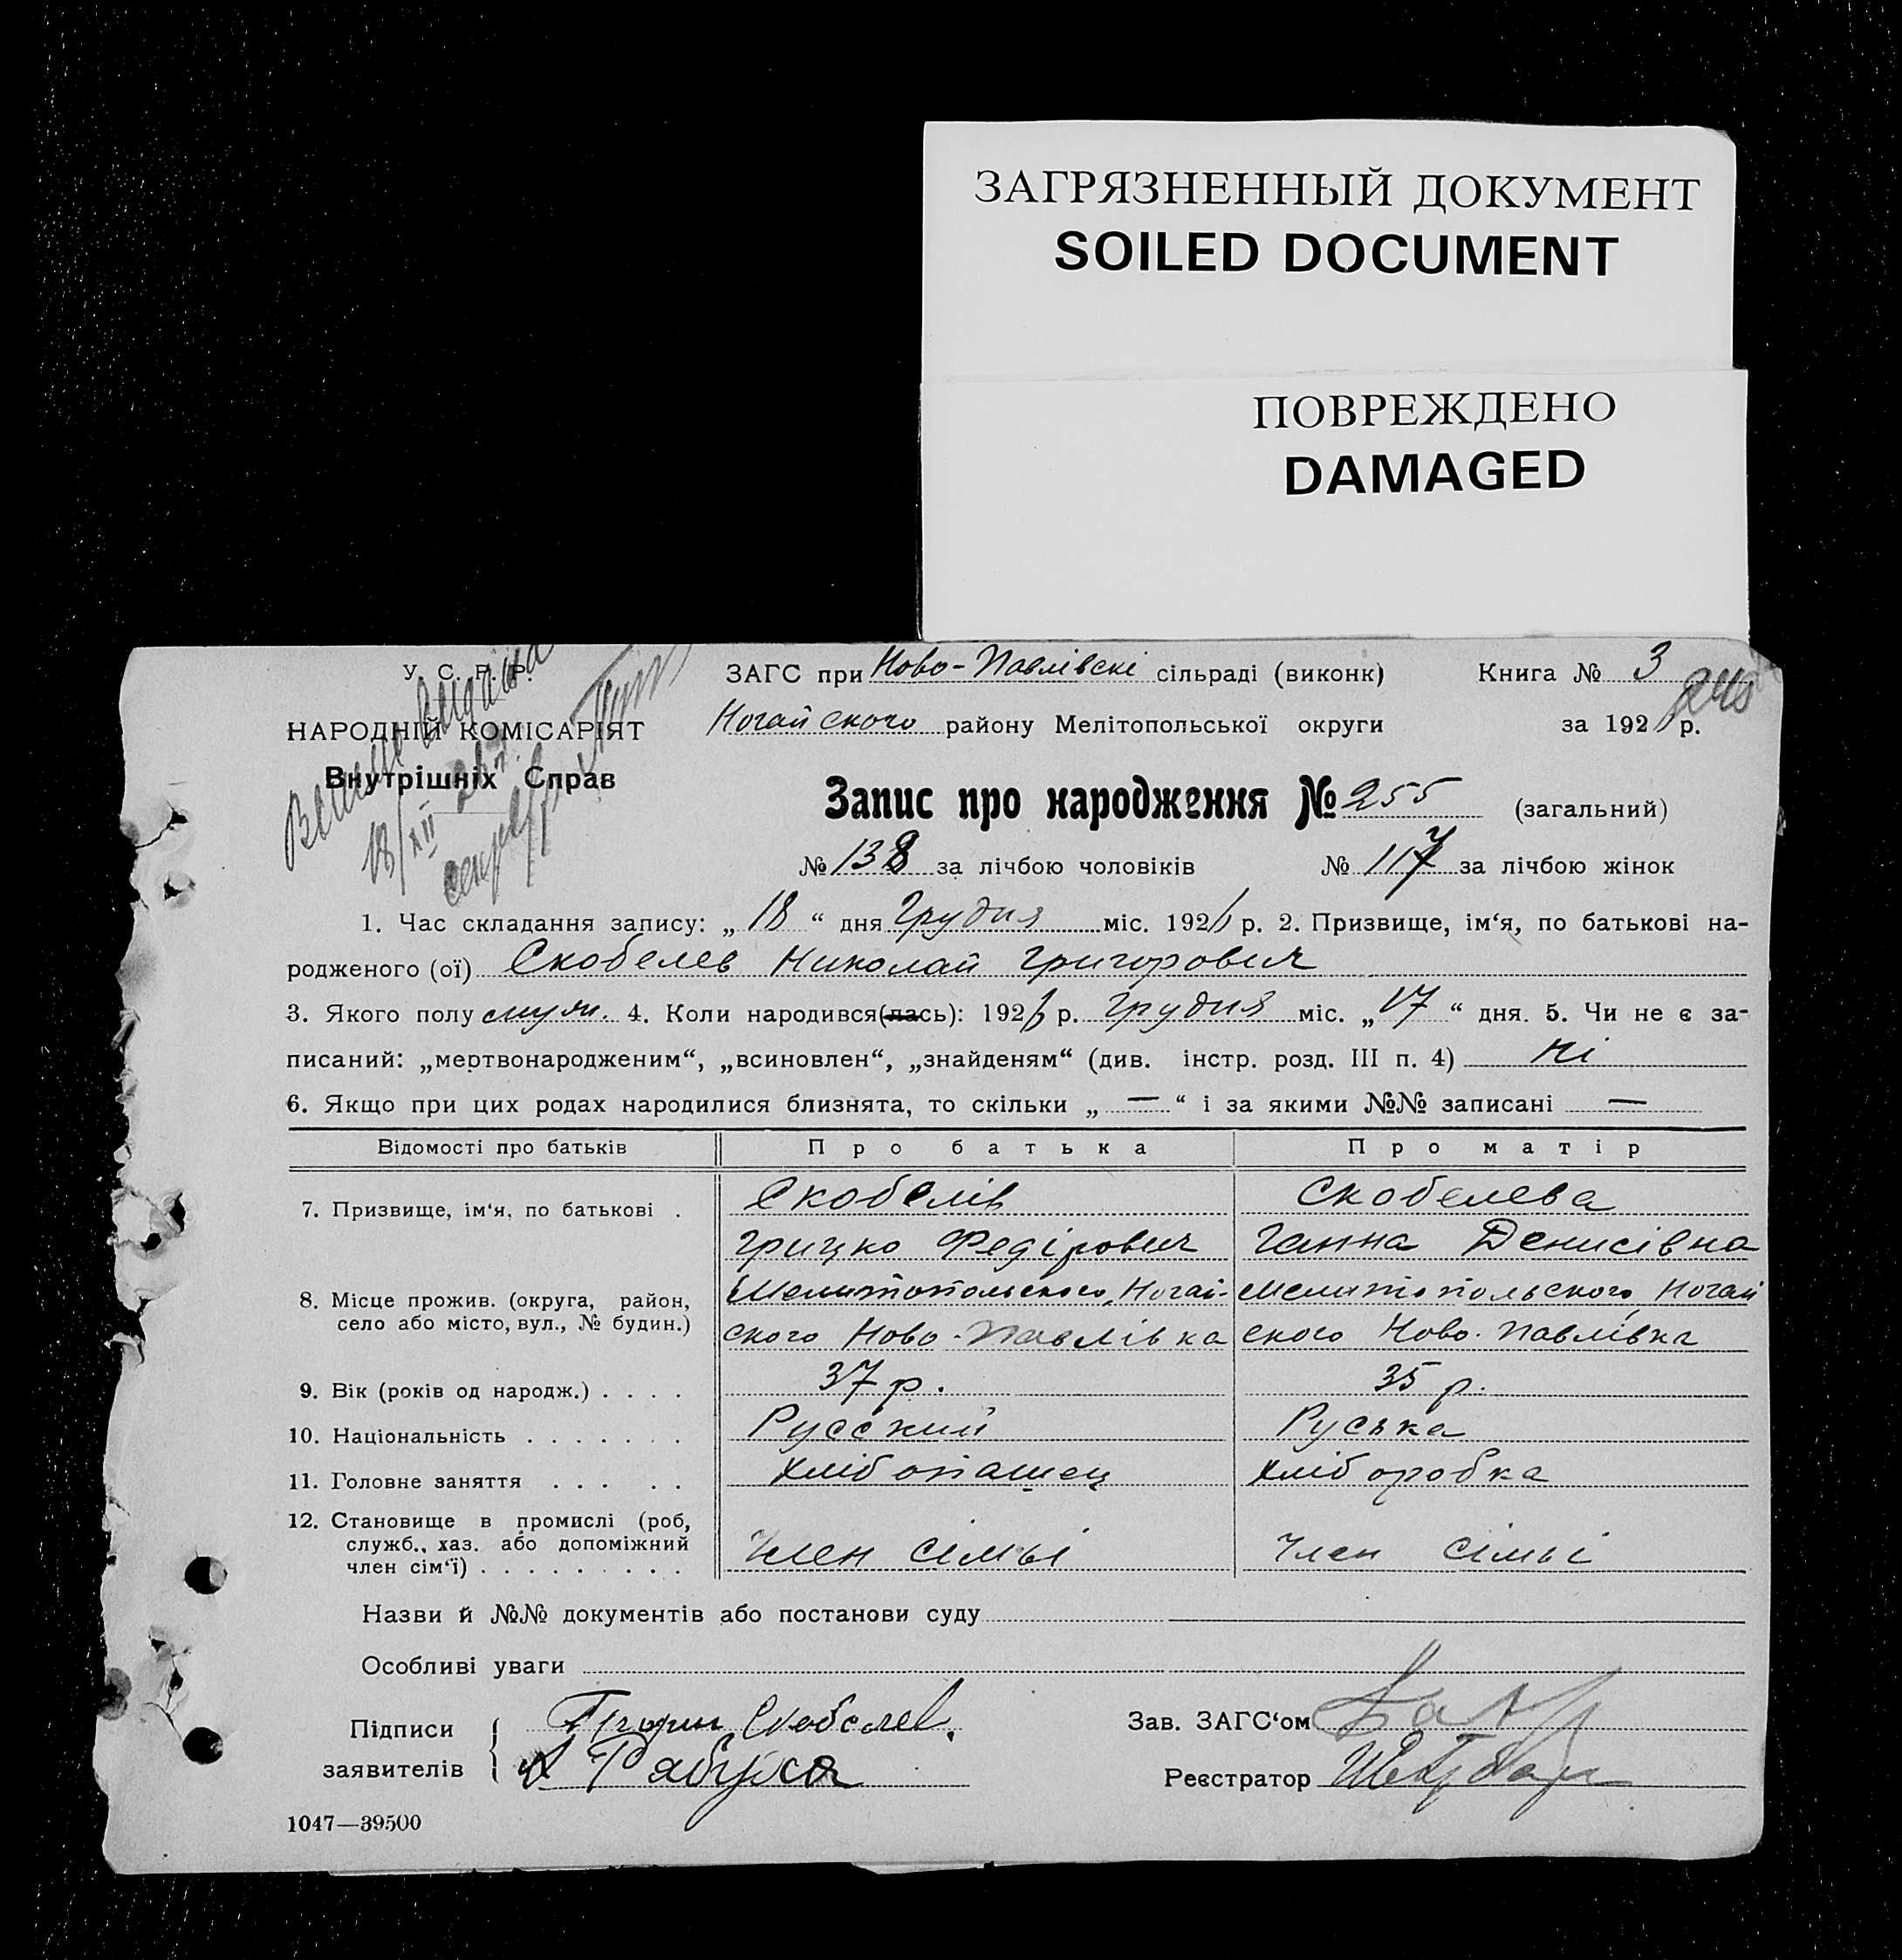 ЗАГРЯЗНЕННЫЙ ДОКУМЕНТ
SOILED DOCUMENT
ПОВРЕЖДЕНО
DAMAGED
У. С. Р. Р.
НАРОДНІЙ КОМІСАРІЯТ
Внутрішніх Справ
18/XII
ЗАГС при Ново-Павлівскі сільраді (виконк) Книга № 3
Ногайского району Мелітопольської округи за 1926 р.
Запис про народження № 255 (загальний)
№ 138 за лічбою чоловіків № 117 за лічбою жінок
1. Час складання запису: „ 18 “ дня Грудня міс. 1926 р. 2. Призвище, ім‘я, по батькові на-
родженого (ої) Скобелев Николай Григорович
3. Якого полу муж. 4. Коли народився(лась): 1926 р. Грудня міс. „ 17 “ дня. 5. Чи не є за-
писаний: „мертвонародженим“, „всиновлен“, „знайденям“ (див. інстр. розд. III п. 4) ні
6. Якщо при цих родах народилися близнята, то скільки „ — “ і за якими №№ записані —
Відомості про батьків Про батька Про матір
7. Призвище, ім‘я, по батькові . Скобелів Скобелева
Грицко Федірович Ганна Денисівна
8. Місце прожив. (округа, район, Мелитопольского, Ногай- Мелитопольского, Ногай
село або місто, вул., № будин.) ского Ново-Павлівка ского Ново-Павлівка
9. Вік (років од народж.) . . . . 37 р. 35 р.
10. Національність . . . . . . . Русский Руська
11. Головне заняття . . . . . Хлібопашец Хлiборобка
12. Становище в промислі (роб,
служб., хаз. або допоміжний
член сім‘ї) . . . . . . . . . Член сімьі Член сімьі
Назви й №№ документів або постанови суду
Особливі уваги
Підписи Скобелев. Зав. ЗАГС‘ом
заявителів Реєстратор
1047—39500